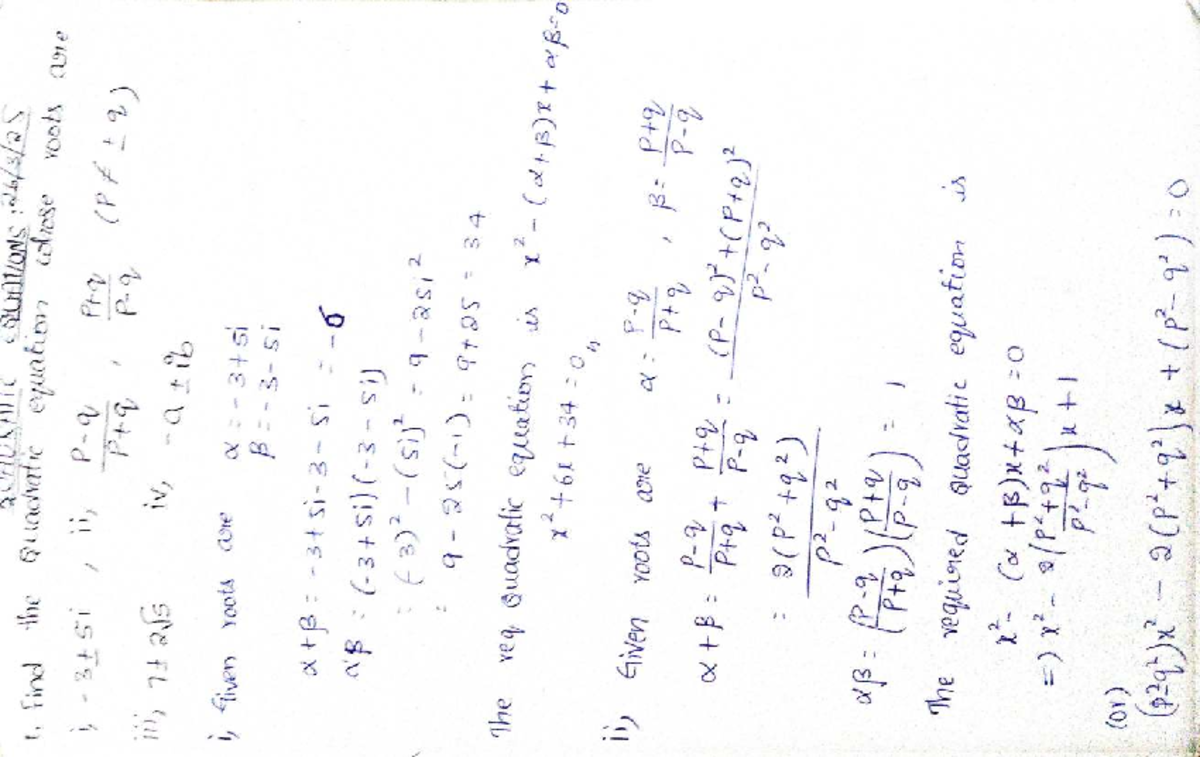 QUADRATIC QUESTIONS : 26/3/25
1, Find the Quadratic equation whose roots are
i, -3 ± 5i , ii, P-q/P+q , P+q/P-q (P ≠ ± q)
iii, 7 ± 2√5 iv, -a ± ib
i, Given roots are α = -3+5i
β = -3-5i
α+β = -3+5i-3-5i = -6
αβ = (-3+5i)(-3-5i)
= (-3)² - (5i)² = 9 - 25i²
= 9 - 25(-1) = 9+25 = 34
The req Quadratic equation is x² - (α+β)x + αβ=0
x² + 6x + 34 = 0,,
ii, Given roots are α = P-q/P+q , β = P+q/P-q
α+β = P-q/P+q + P+q/P-q = (P-q)² + (P+q)²/P²-q²
= 2(P²+q²)/P²-q²
αβ = (P-q/P+q)(P+q/P-q) = 1
The required Quadratic equation is
x² - (α+β)x + αβ = 0
=) x² - 2(P²+q²/P²-q²)x + 1
(or)
(p²-q²)x² - 2(P²+q²)x + (P²-q²) = 0